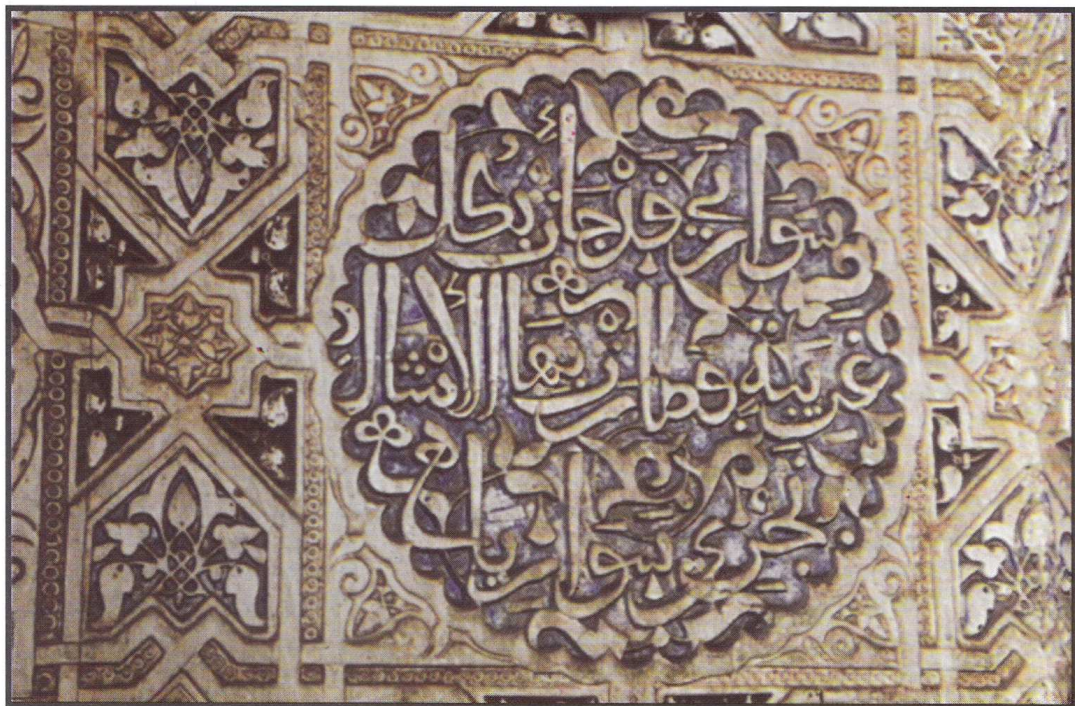 سواري قد جاءت بكل
غريبة فطارت بها الأمثال
تجري سواريا